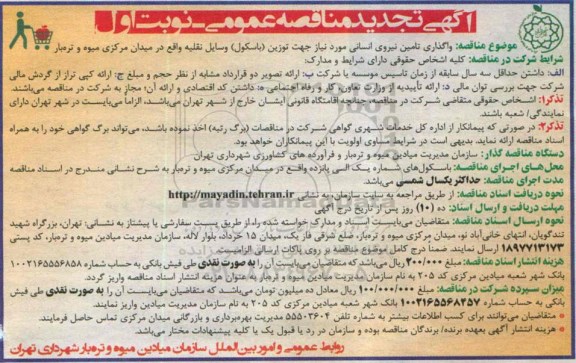 آگهی تجدید مناقصه عمومی - نوبت اول
موضوع مناقصه: واگذاری تامین نیروی انسانی مورد نیاز جهت توزین (باسکول) وسایل نقلیه واقع در میدان مرکزی میوه و تره‌بار
شرایط شرکت در مناقصه: کلیه اشخاص حقوقی دارای شرایط و مدارک:
الف: داشتن حداقل سه سال سابقه از زمان تاسیس موسسه یا شرکت ب: ارائه تصویر دو قرارداد مشابه از نظر حجم و مبلغ ج: ارائه کپی تراز از گردش مالی
شرکت جهت بررسی توان مالی د: ارائه تأییدیه از وزارت تعاون، کار و رفاه اجتماعی ه: داشتن کد اقتصادی و ارائه آن؛ مجاز به شرکت در مناقصه می‌باشند.
تذکر۱: اشخاص حقوقی متقاضی شرکت در مناقصه، چنانچه اقامتگاه قانونی ایشان خارج از شهر تهران می‌باشد، الزاما می‌بایست در شهر تهران دارای
نمایندگی/ شعبه باشند.
تذکر۲: در صورتی که پیمانکار از اداره کل خدمات شهری گواهی شرکت در مناقصات (برگ رتبه) اخذ نموده باشد، می‌تواند برگ گواهی خود را به همراه
اسناد مناقصه ارائه نماید، بدیهی است در شرایط مساوی اولویت با این پیمانکاران خواهد بود.
دستگاه مناقصه گذار: سازمان مدیریت میادین میوه و تره‌بار و فرآورده های کشاورزی شهرداری تهران
محل‌های اجرای مناقصه: باسکول‌های شماره یک الی پانزده واقع در میدان مرکزی میوه و تره‌بار به شرح نشانی مندرج در اسناد مناقصه
مدت اجرای مناقصه: حداکثر یکسال شمسی می‌باشد.
نحوه دریافت اسناد مناقصه: از طریق مراجعه به سایت سازمان به نشانی http://mayadin.tehran.ir
مهلت دریافت و ارسال اسناد: ده (۱۰) روز پس از تاریخ درج آگهی
نحوه ارسال اسناد مناقصه: متقاضیان می‌بایست اسناد و مدارک خواسته شده را از طریق پست سفارشی یا پیشتاز به نشانی: تهران، بزرگراه شهید
تندگویان، انتهای خانی‌آباد نو، میدان مرکزی میوه و تره‌بار، ضلع شرقی فاز یک، میدان ۱۵ خرداد، بلوار لاله، سازمان مدیریت میادین میوه و تره‌بار، کد پستی
۱۸۹۷۷۱۳۱۷۳ ارسال نمایند. ضمنا درج کامل موضوع مناقصه بر روی پاکات ارسالی الزامیست.
هزینه انتشار اسناد مناقصه: مبلغ ۳۰۰/۰۰۰ ریال می‌باشد که متقاضیان می‌بایست آن را به صورت نقدی طی فیش بانکی به حساب شماره ۱۰۰۲۱۶۵۵۵۶۸۵۸
بانک شهر شعبه میادین مرکزی کد ۲۰۵ به نام سازمان مدیریت میادین میوه و تره‌بار به عنوان هزینه انتشار اسناد مناقصه واریز گردد.
میزان سپرده شرکت در مناقصه: مبلغ ۱۰۰/۰۰۰/۰۰۰ ریال معادل ده میلیون تومان می‌باشد که متقاضیان می‌بایست آن را به صورت نقدی طی فیش
بانکی به حساب شماره ۱۰۰۲۱۶۵۵۶۸۲۵۷ بانک شهر شعبه میادین مرکزی کد ۲۰۵ به نام سازمان مدیریت میادین واریز نمایند.
• متقاضیان می‌توانند برای کسب اطلاعات بیشتر به شماره تلفن ۵۵۵۰۳۶۰۴ مدیریت بهره‌برداری و بازرگانی میدان مرکزی تماس حاصل فرمایند.
• هزینه انتشار آگهی بعهده برنده/ برندگان مناقصه بوده و سازمان در رد یا قبول یک یا کلیه پیشنهادات مختار می‌باشد.
روابط عمومی و امور بین الملل سازمان میادین میوه و تره‌بار شهرداری تهران